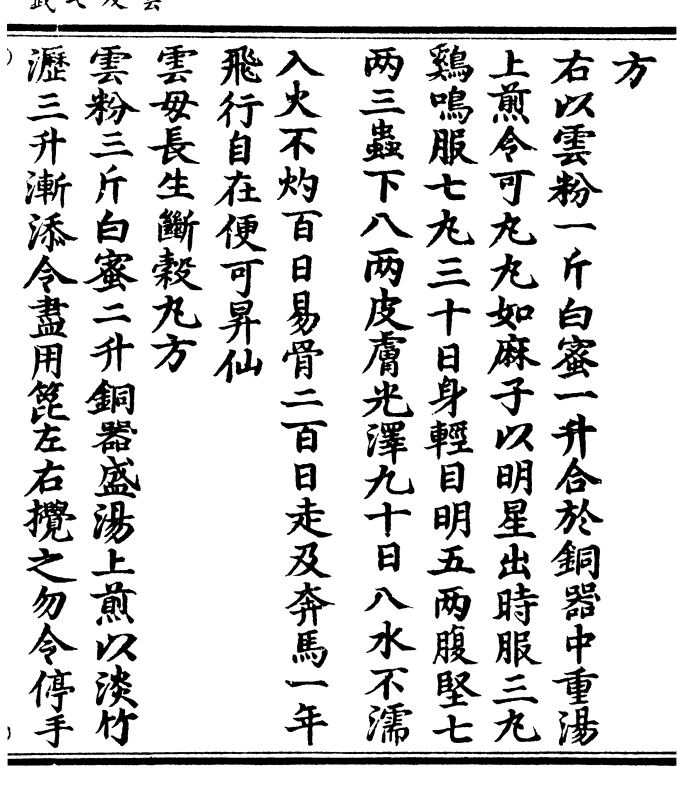 方
右以雲粉一斤白蜜一升合於銅器中重湯
上煎令可丸丸如麻子以明星出時服三丸
鷄鳴服七丸三十日身輕目明五两腹堅七
两三蟲下八两皮膚光澤九十日入水不濡
入火不灼百日易骨二百日走及奔馬一年
飛行自在便可昇仙
雲母長生斷穀丸方
雲粉三斤白蜜二升銅器盛湯上煎以淡竹
瀝三升漸添令盡用篦左右攪之勿令停手